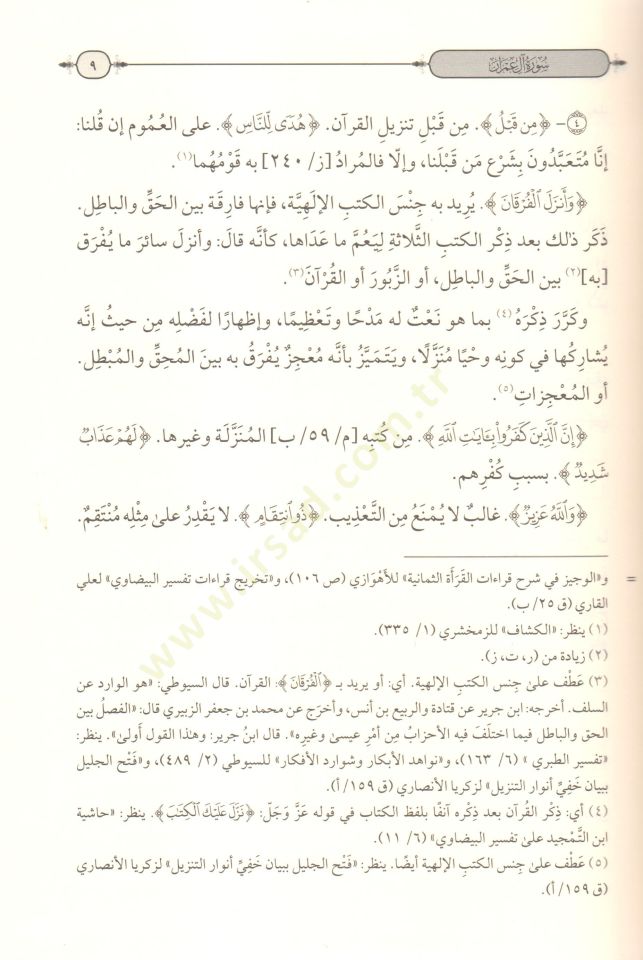 سُورَةُ آلِ عِمْرَانَ
٩
(٤)- ﴿مِن قَبْلُ﴾. مِن قَبْلِ تنزيلِ القرآن. ﴿هُدًى لِّلنَّاسِ﴾. على العُمُوم إن قُلنا:
إنَّا مُتَعَبَّدُونَ بِشَرْعِ مَن قَبْلَنا، وإلّا فالمُرادُ [ز/ ٢٤٠] به قَوْمُهُما(١).
﴿وَأَنزَلَ ٱلْفُرْقَانَ﴾. يُرِيد به جِنْسَ الكتبِ الإلٰهِيَّة، فإنها فارِقَة بين الحَقِّ والباطِلِ.
ذَكَر ذٰلك بعد ذِكْر الكتبِ الثَّلاثةِ لِيَعُمَّ ما عَدَاها، كأنَّه قالَ: وأنزل سائرَ ما يُفْرَق
[به](٢) بين الحَقِّ والباطِلِ، أو الزَّبُورَ أو القُرْآنَ(٣).
وكَرَّرَ ذِكْرَهُ(٤) بما هو نَعْتٌ له مَدْحًا وتَعْظِيمًا، وإظهارًا لفَضْلِه مِن حيثُ إنَّه
يُشارِكُها في كونِه وحْيًا مُنَزَّلًا، ويَتَمَيَّزُ بأنَّه مُعْجِزٌ يُفْرَقُ به بينَ المُحِقِّ والمُبْطِل.
أو المُعْجِزاتِ(٥).
﴿إِنَّ ٱلَّذِينَ كَفَرُوا۟ بِـَٔايَـٰتِ ٱللَّهِ﴾. مِن كُتبِه [م/ ٥٩/ ب] المُنَزَّلَة وغيرِها. ﴿لَهُمْ عَذَابٌ
شَدِيدٌ﴾. بسببِ كُفْرِهم.
﴿وَٱللَّهُ عَزِيزٌ﴾. غالبٌ لا يُمْنَعُ مِن التَّعْذِيب. ﴿ذُو ٱنتِقَامٍ﴾. لا يَقْدِرُ علىٰ مِثْلِه مُنْتَقِمٌ.
= و«الوجيز في شرح قراءات القَرَأَة الثمانية» للأهْوَازي (ص ١٠٦)، و«تخريج قراءات تفسير البيضاوي» لعلي
القاري (ق ٢٥/ ب).
(١) ينظر: «الكشاف» للزمخشري (١/ ٣٣٥).
(٢) زيادة من (ر، ت، ز).
(٣) عَطْف علىٰ جنس الكتبِ الإلٰهية. أي: أو يريد بـ ﴿ٱلْفُرْقَانَ﴾: القرآن. قال السيوطي: «هو الوارد عن
السلف. أخرجه: ابن جرير عن قتادة والربيع بن أنس، وأخرَج عن محمد بن جعفر الزبيري قال: «الفصلُ بين
الحق والباطل فيما اختلَفَ فيه الأحزابُ مِن أمْرِ عيسىٰ وغيرِه». قال ابنُ جرير: وهٰذا القول أَولىٰ». ينظر:
«تفسير الطبري» (٦/ ١٦٣)، و«نواهد الأبكار وشوارد الأفكار» للسيوطي (٢/ ٤٨٩)، و«فَتْح الجليل
ببيان خَفِيِّ أنوار التنزيل» لزكريا الأنصاري (ق ١٥٩/ أ).
(٤) أي: ذِكْر القُرآن بعد ذِكْره آنفًا بلفظ الكتاب في قوله عَزَّ وَجَلَّ: ﴿نَزَّلَ عَلَيْكَ ٱلْكِتَـٰبَ﴾. ينظر: «حاشية
ابن التَّمْجِيد علىٰ تفسير البيضاوي» (٦/ ١١).
(٥) عَطْف علىٰ جنس الكتب الإلٰهية أيضًا. ينظر: «فَتْح الجليل ببيان خَفِيِّ أنوار التنزيل» لزكريا الأنصاري
(ق ١٥٩/ أ).
www.irsad.com.tr